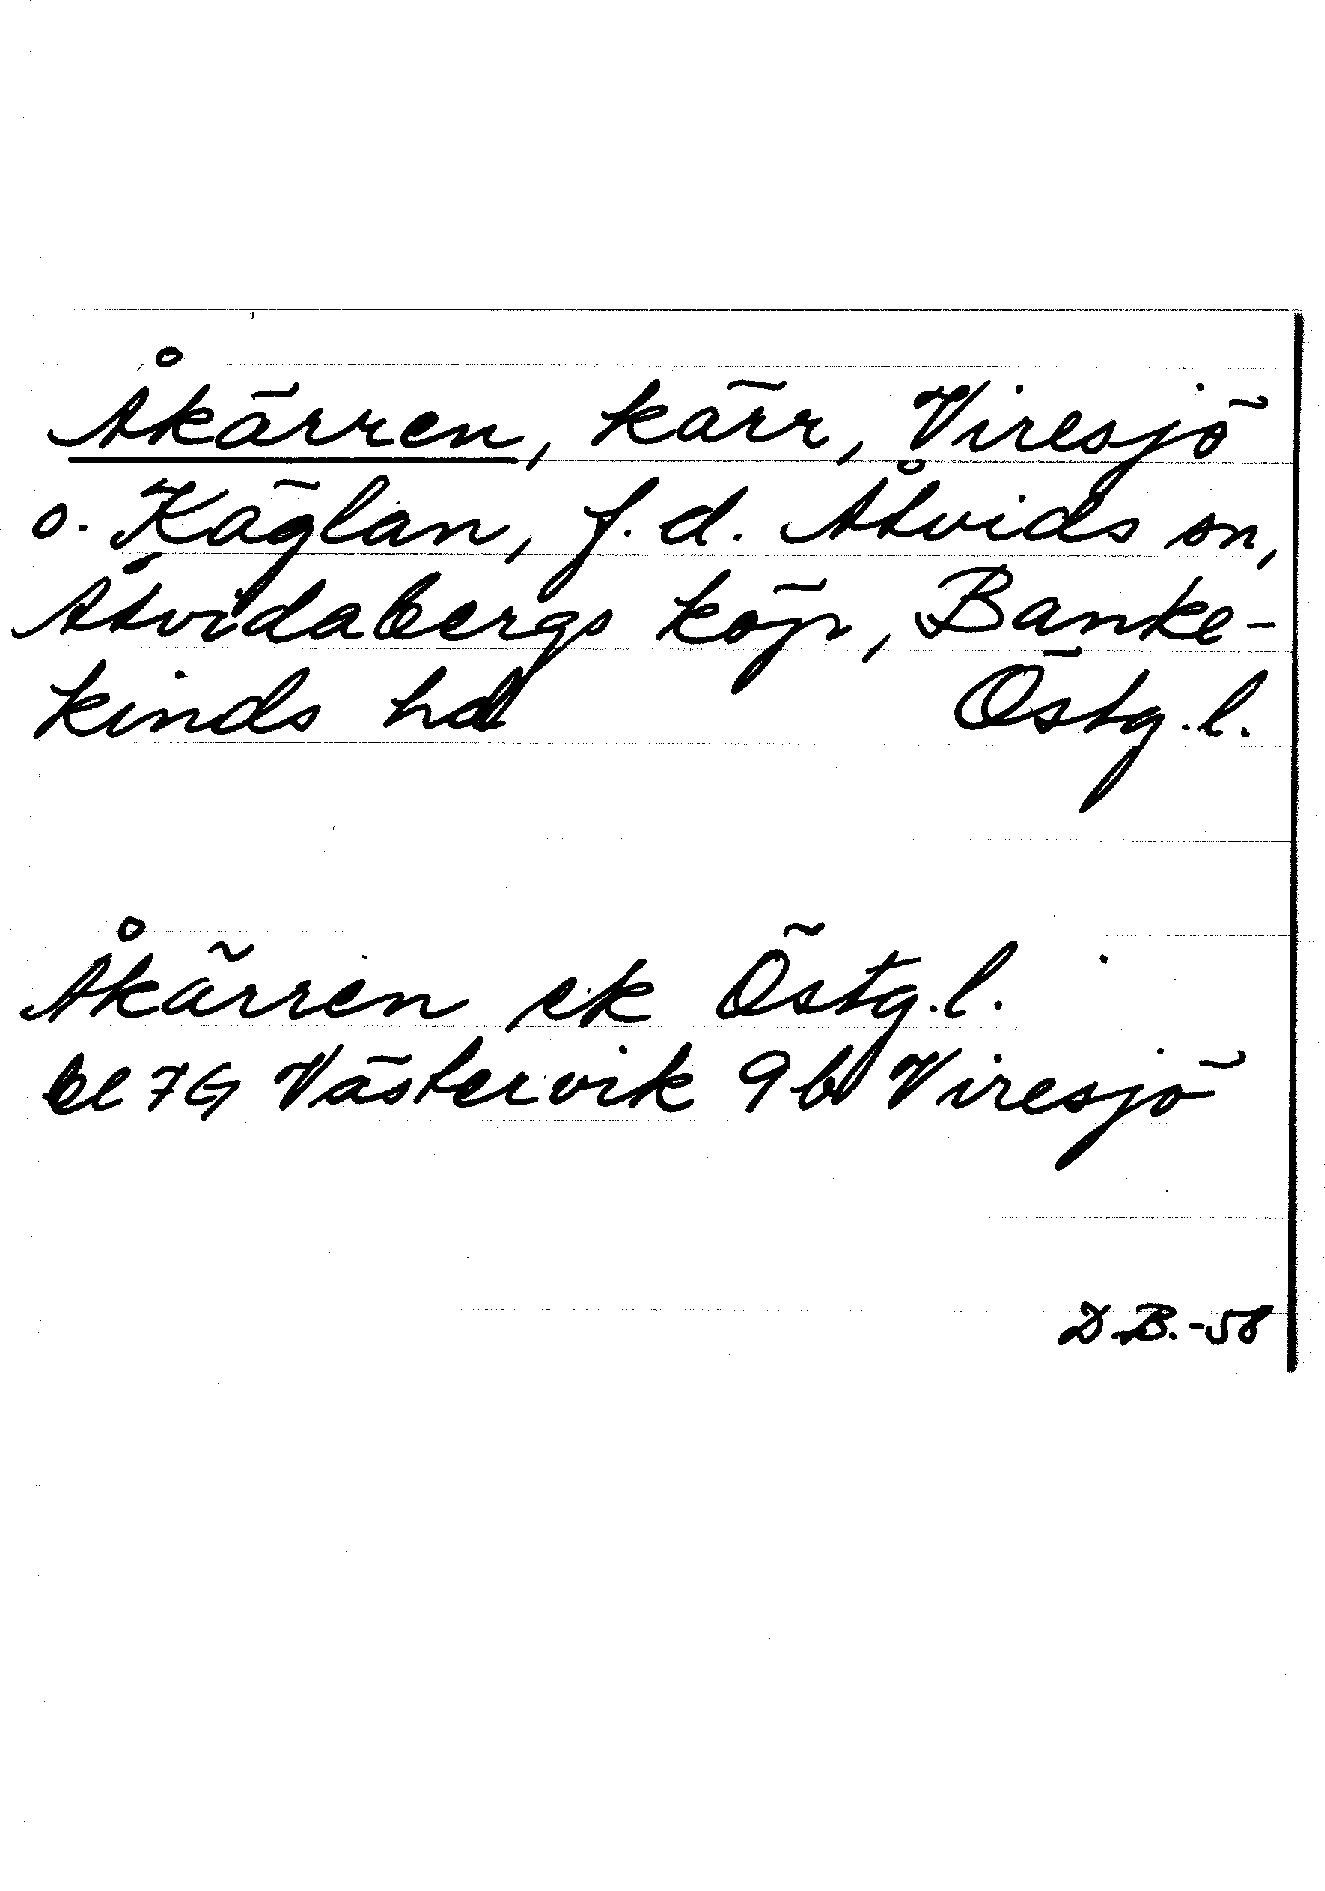 Åkärren, kärr, Viresjö
o. Käglan, f.d. Åtvids sn,
Åtvidabergs köp, Banke-
kinds hd Östg.l.
Åkärren ek Östg.l.
bl 7G Västervik 9b Viresjö
D.B.-58